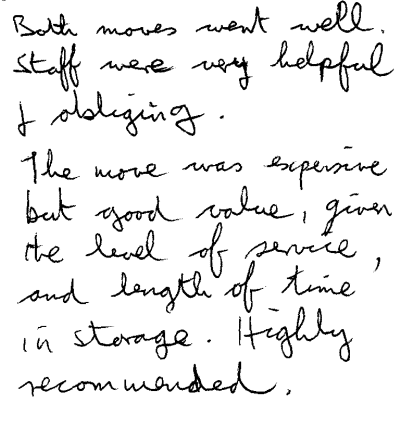 Both moves went well.
Staff were very helpful
& obliging.
The move was expensive
but good value, given
the level of service,
and length of time
in storage. Highly
recommended.